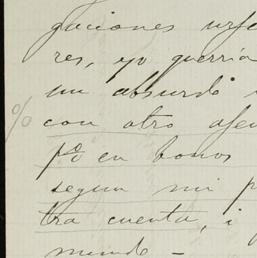 guciones urge
res, yo querria
un absurdo
%
con otro
pº en bonos
segun mi p
tra cuenta, i
mundo —